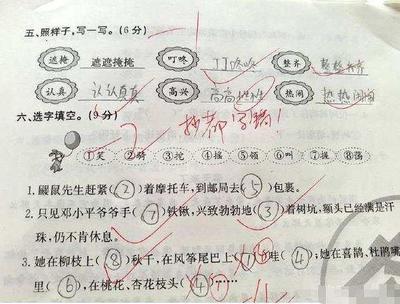 五、照样子,写一写。(6分)
遮掩 遮遮掩掩 叮咚 丁丁咚咚 整齐 整整齐齐
认真 认认真真 高兴 高高兴兴 热闹 热热闹闹
六、选字填空。(9分) 抄都
①笑 ②骑 ③挖 ④摇 ⑤领 ⑥叫 ⑦握 ⑧荡
1. 鼹鼠先生赶紧(2)着摩托车,到邮局去(5)包裹。
2. 只见邓小平爷爷手(7)铁锹,兴致勃勃地(3)着树坑,额头已经满是汗
珠,仍不肯休息。
3. 她在柳枝上(8)秋千,在风筝尾巴上(1)哇(4);她在喜鹊、杜鹃嘴
里(6),在桃花、杏花枝头(4)……